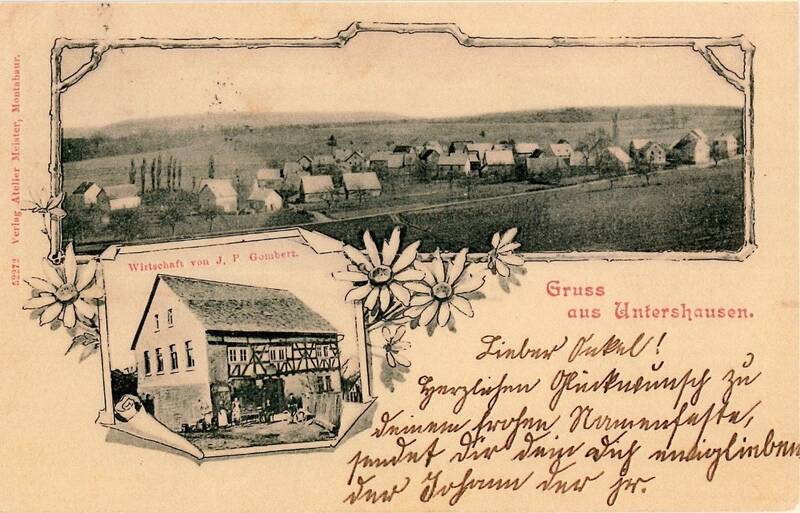 52272 Verlag Atelier Meister, Montabaur.
Wirtschaft von J. P. Gombert.
Gruss
aus Untershausen.
Lieber Onkel!
Herzlichen Glückwunsch zu
deinem frohen Namenfeste,
sendet Dir dein Dich ewiglieben
der Johann der